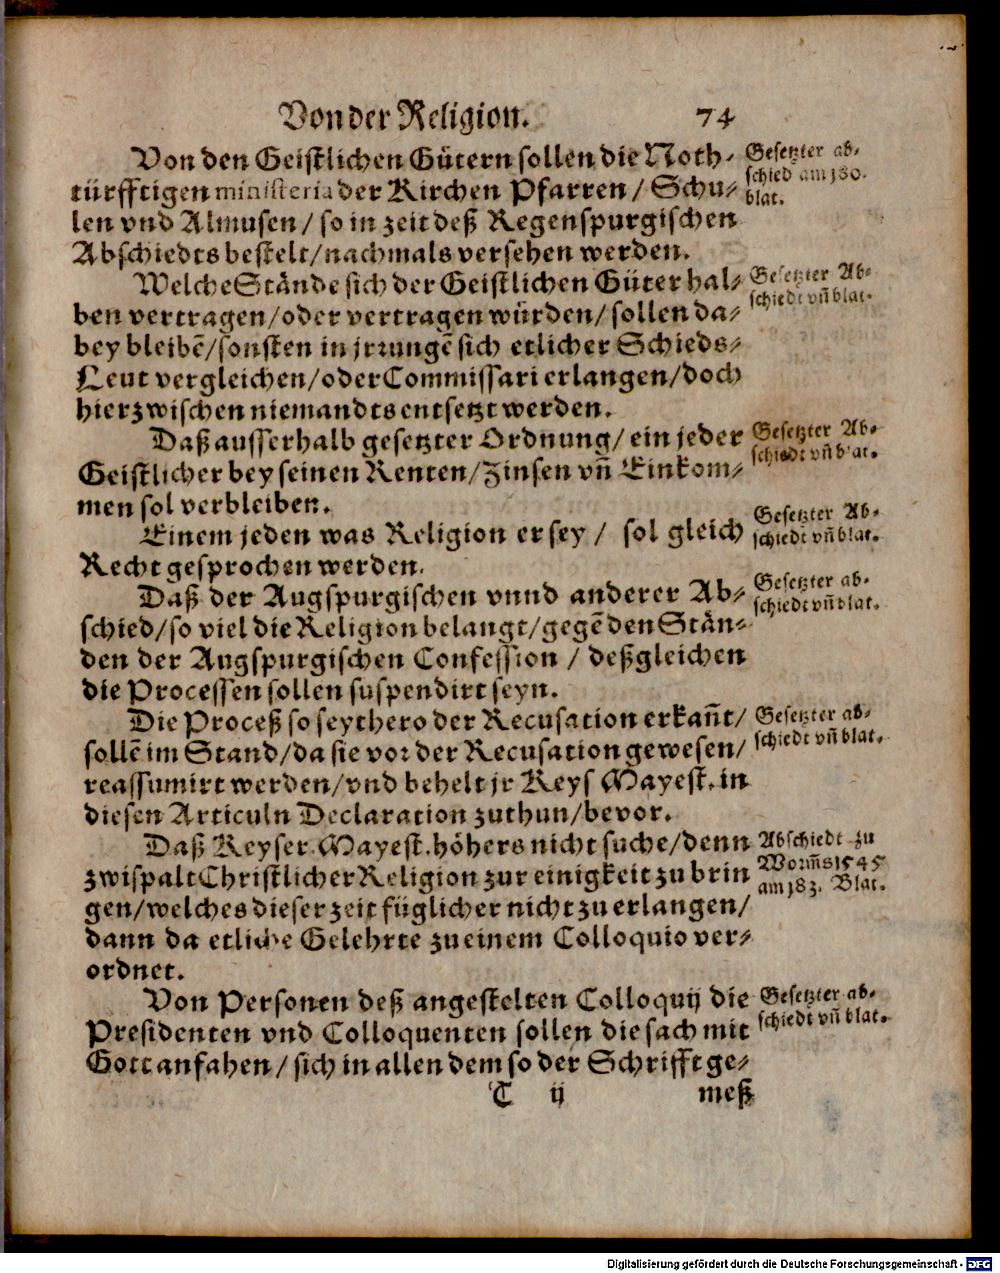 Von der Religion. 74
Von den Geistlichen Gütern sollen die Noth-
türfftigen ministeria der Kirchen Pfarren / Schu-
len vnd Almusen / so in zeit deß Regenspurgischen
Abschiedts bestelt / nachmals versehen werden.
Gesetzter ab-
schied am 180.
blat.
Welche Stände sich der Geistlichen Güter hal-
ben vertragen / oder vertragen würden / sollen da-
bey bleibē / sonsten in jrrungē sich etlicher Schieds-
Leut vergleichen / oder Commissari erlangen / doch
hierzwischen niemandts entsetzt werden.
Gesetzter Ab-
schiedt vñ blat.
Daß ausserhalb gesetzter Ordnung / ein jeder
Geistlicher bey seinen Renten / Zinsen vñ Einkom-
men sol verbleiben.
Gesetzter Ab-
schiedt vñ blat.
Einem jeden was Religion er sey / sol gleich
Recht gesprochen werden.
Gesetzter Ab-
schiedt vñ blat.
Daß der Augspurgischen vnnd anderer Ab-
schied / so viel die Religion belangt / gegē den Stän-
den der Augspurgischen Confession / deßgleichen
die Processen sollen suspendirt seyn.
Gesetzter ab-
schiedt vñ blat.
Die Proceß so seythero der Recusation erkañt /
sollē im Stand / da sie vor der Recusation gewesen /
reassumirt werden / vnd behelt jr Keys Mayest. in
diesen Articuln Declaration zuthun / bevor.
Gesetzter ab-
schiedt vñ blat.
Daß Keyser. Mayest. höhers nicht suche / denn
zwispalt Christlicher Religion zur einigkeit zu brin
gen / welches dieser zeit füglicher nicht zu erlangen /
dann da etliche Gelehrte zu einem Colloquio ver-
ordnet.
Abschiedt zu
Worm̃s 1545
am 183. Blat.
Von Personen deß angestelten Colloquij die
Presidenten vnd Colloquenten sollen die sach mit
Gott anfahen / sich in allen dem so der Schrifft ge-
Gesetzter ab-
schiedt vñ blat.
T ij meß
Digitalisierung gefördert durch die Deutsche Forschungsgemeinschaft - DFG